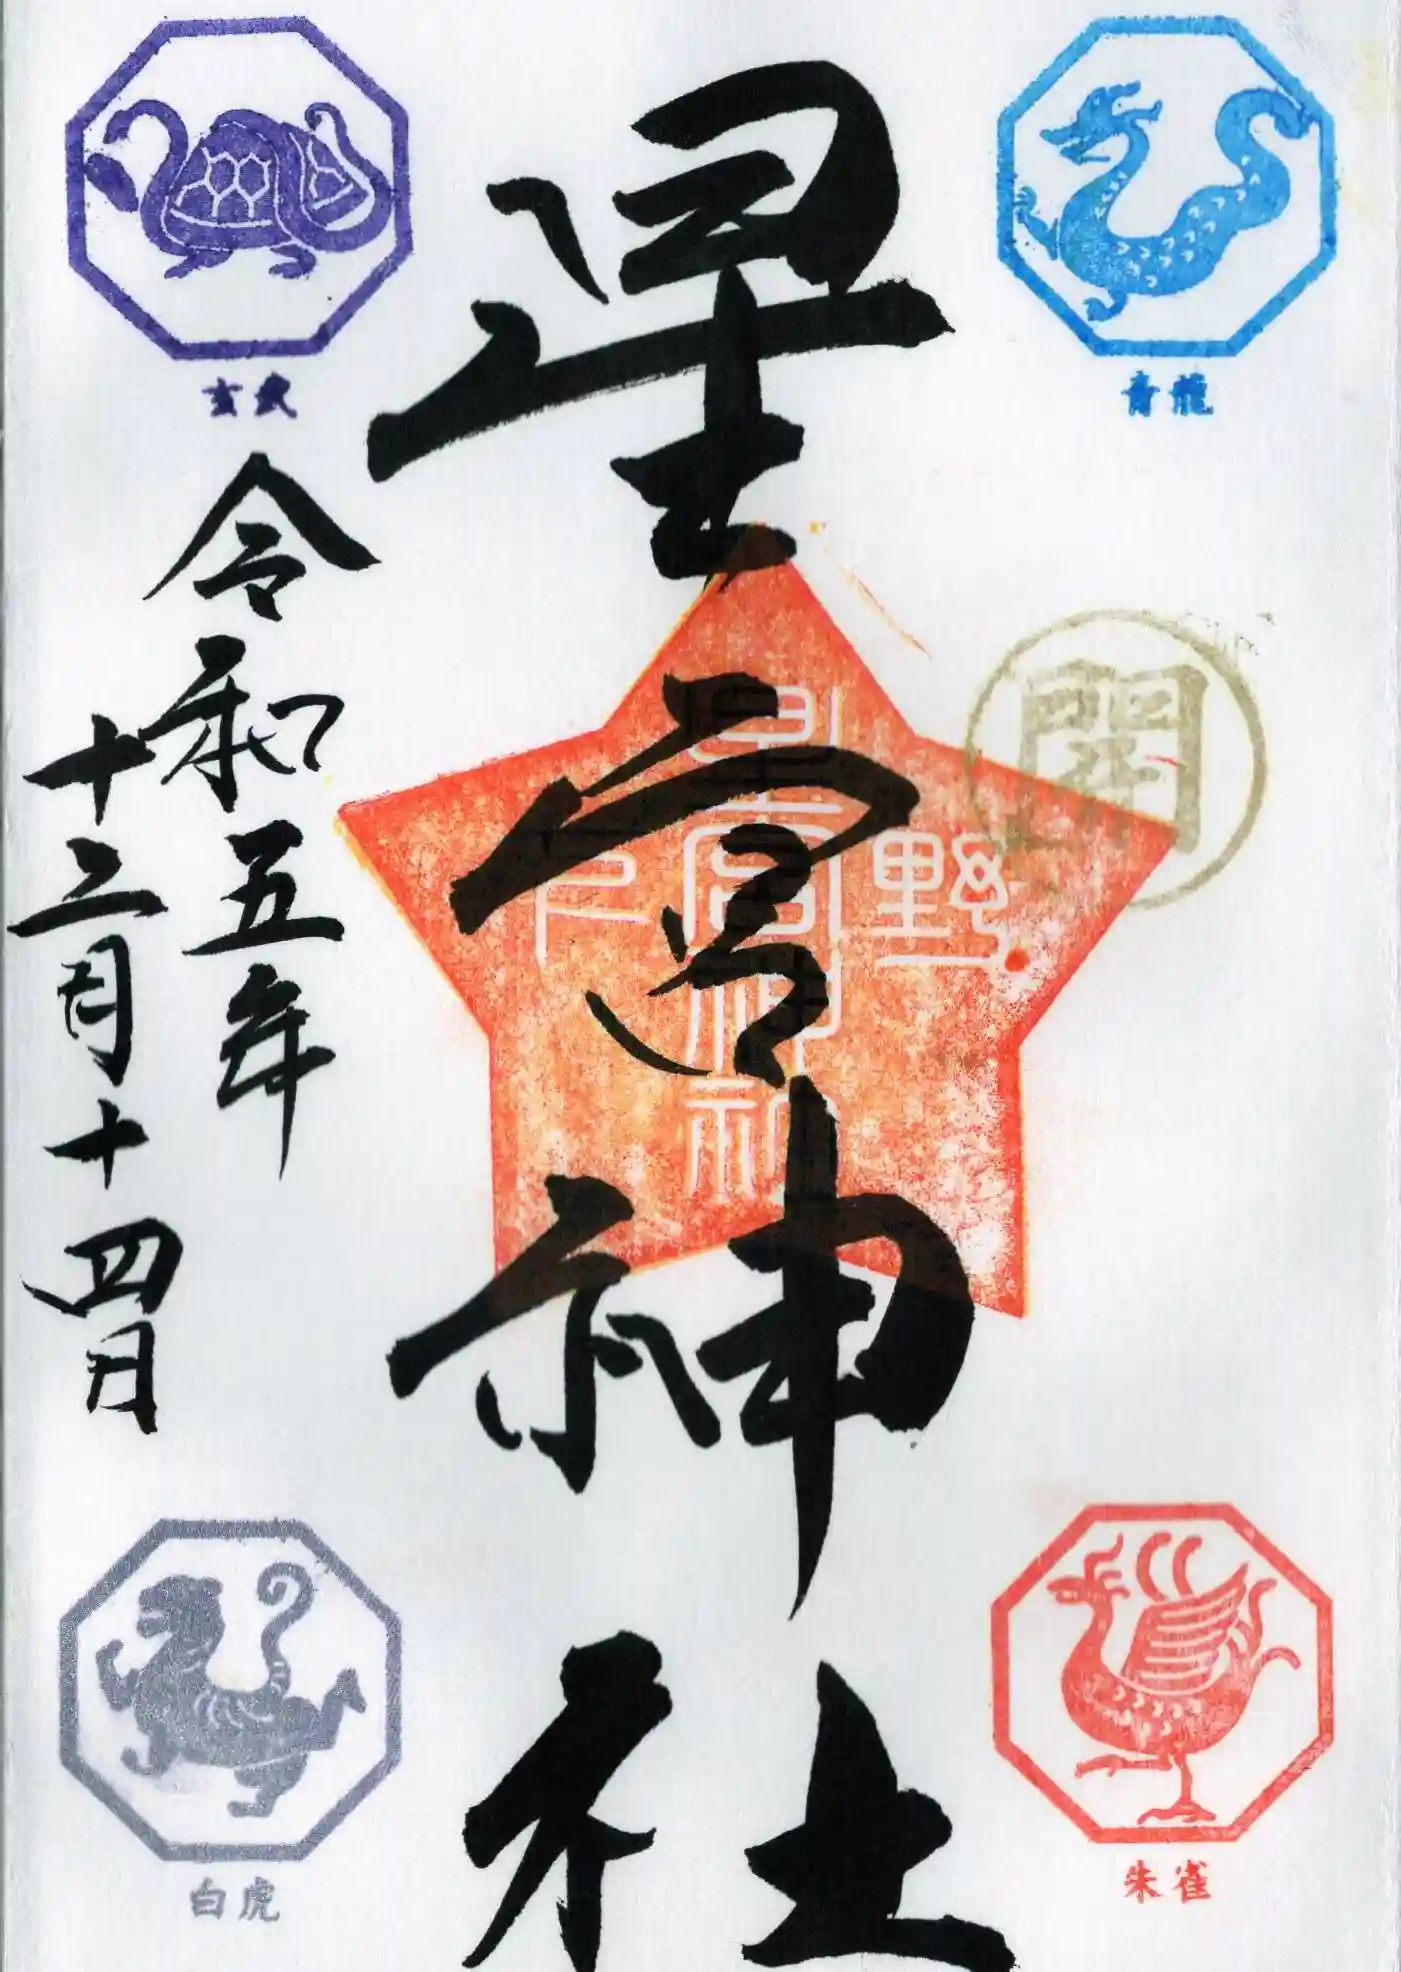 青龍
開
朱雀
星宮神社
野
星宮神社
玄武
令和五年
十二月十四日
白虎